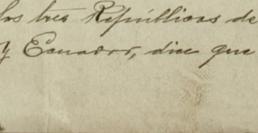 los tres Repúblicas de
y Ecuador, dice que